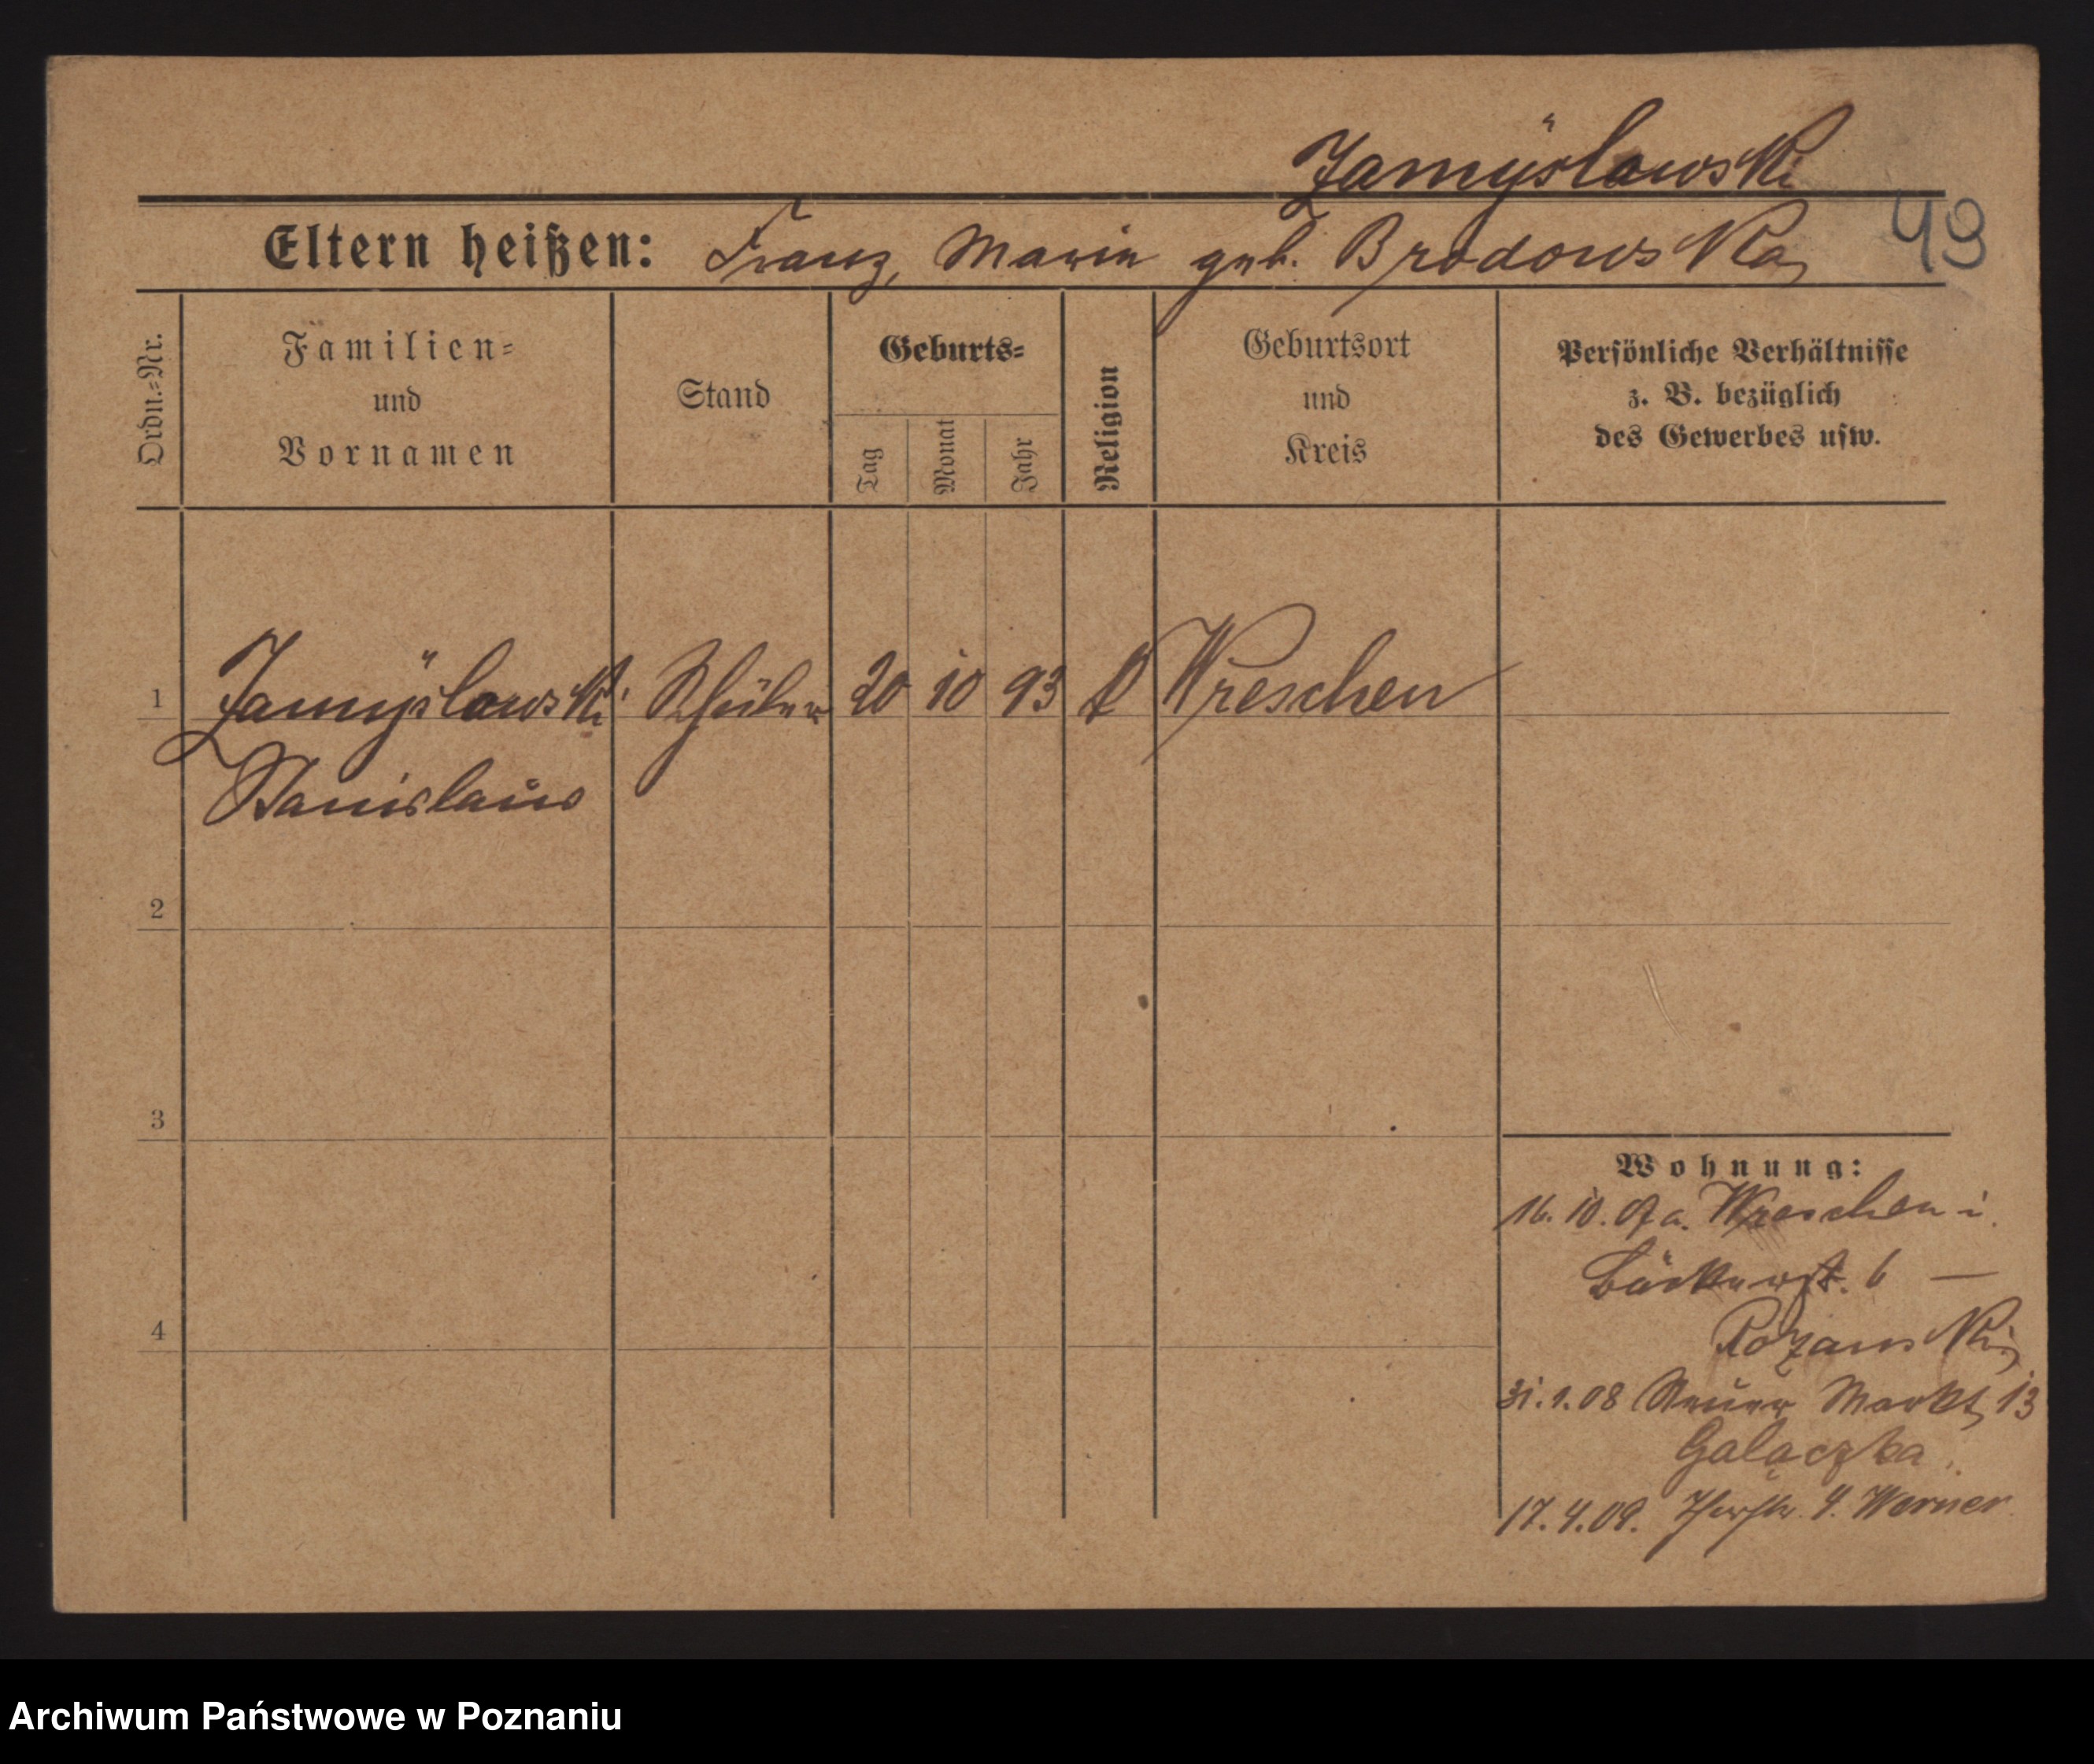 Zamÿslowski
Eltern heißen: Franz, Marie geb. Brodowska
49
Ordn.=Nr.
Familien=
und
Vornamen
Stand
Geburts=
Tag
Monat
Jahr
Religion
Geburtsort
und
Kreis
Persönliche Verhältnisse
z. B. bezüglich
des Gewerbes usw.
1 Zamÿslowski Schüler 20 10 93 k Wreschen
Stanislaus
2
3
4
Wohnung:
16. 10. 07 a. Wreschen i.
Bäckerst. 6 —
Rozanski
31. 1. 08 Neuer Markt 13
Galączka
17. 4. 09. 4. Werner
Archiwum Państwowe w Poznaniu